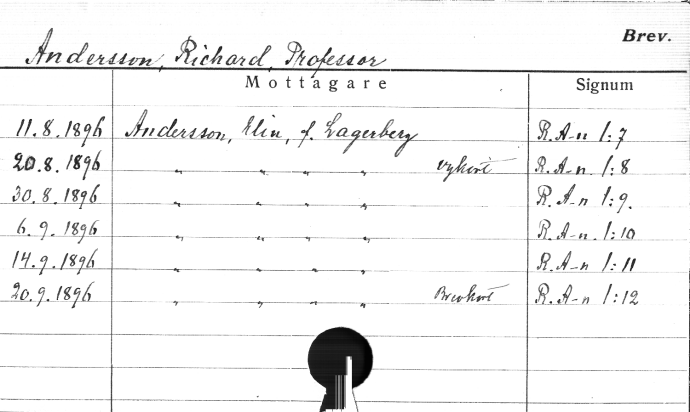 Brev.
Andersson, Richard, Professor
Mottagare Signum
11.8.1896 Andersson, Elin, f. Lagerberg R.A-n 1:7
20.8.1896 " " " " Vykort R.A-n. 1:8
30.8.1896 " " " " R.A-n 1:9.
6.9.1896 " " " " R.A-n. 1:10
14.9.1896 " " " " R.A-n 1:11
20.9.1896 " " " " Brevkort R.A-n 1:12